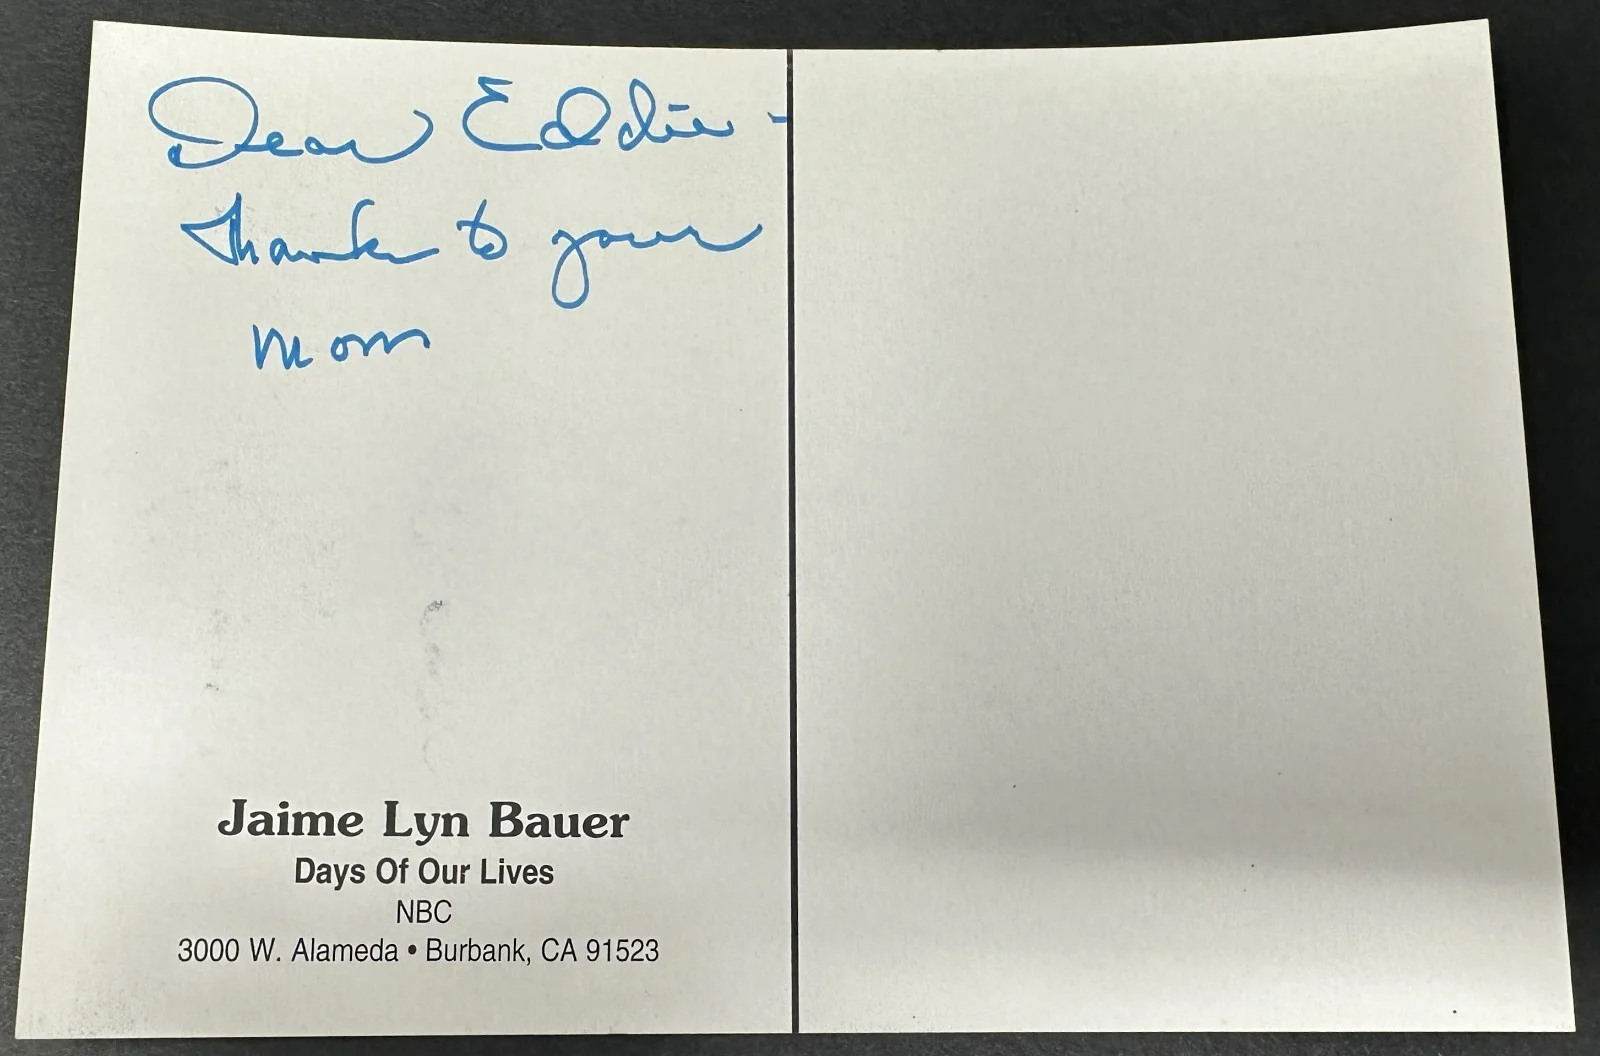 Dear Eddie -
Thanks to your
mom
Jaime Lyn Bauer
Days Of Our Lives
NBC
3000 W. Alameda • Burbank, CA 91523